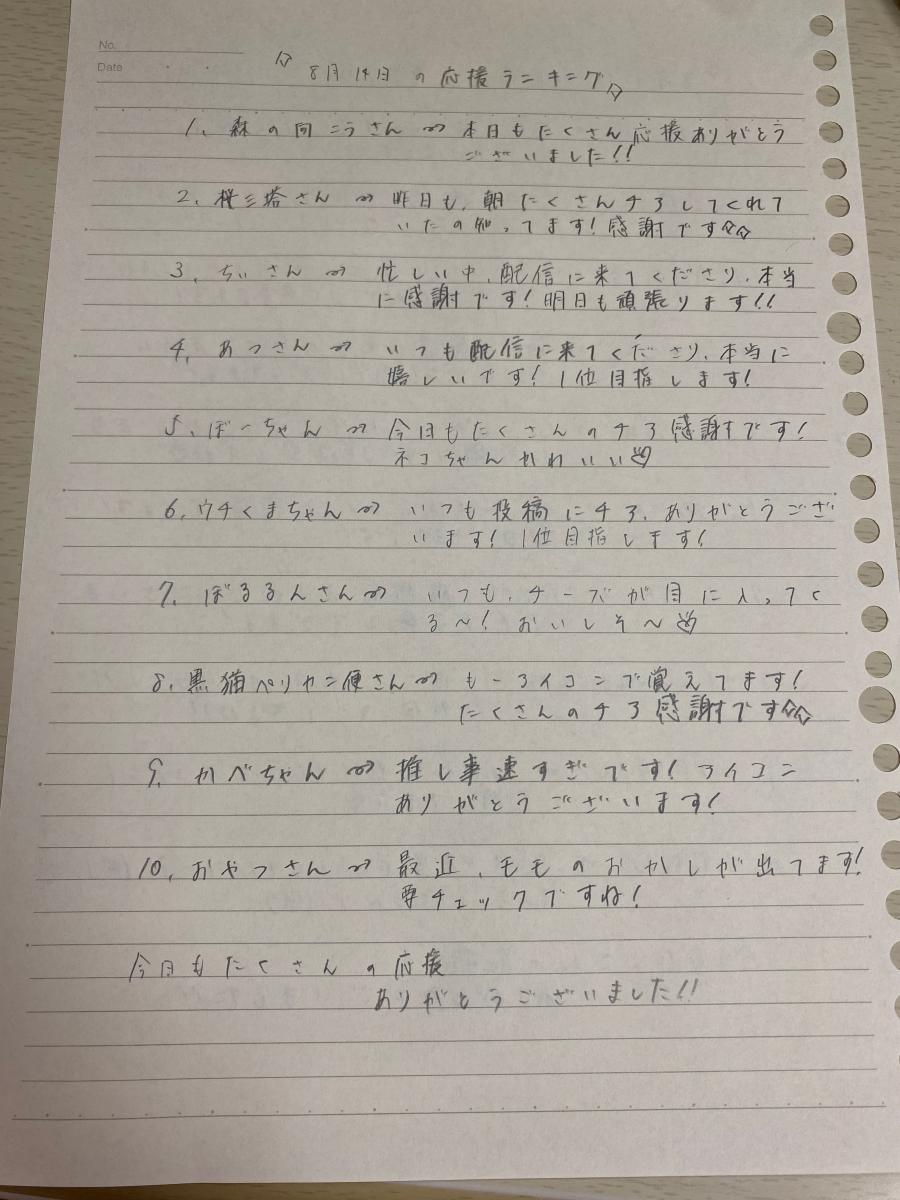 No.
Date
☆ 8月14日 の 応援ランキング☆
1. 森の向こうさん 〜> 本日もたくさん応援ありがとう
ございました!!
2. 桜三塔さん 〜> 昨日も、朝たくさんチアしてくれて
いたの知ってます!感謝です☆☆
3. ちぃさん 〜> 忙しい中、配信に来てくださり、本当
に感謝です!明日も頑張ります!!
4. あつさん 〜> いつも配信に来てくださり、本当に
嬉しいです!1位目指します!
5. ぼーちゃん 〜> 今日もたくさんのチア感謝です!
ネコちゃんかわいい♡
6. ウチくまちゃん 〜> いつも投稿にチア、ありがとうござ
います!1位目指します!
7. ぽるるんさん 〜> いつも、チーズが目に入ってく
る〜!おいしそ〜♡
8. 黒猫ペリカン便さん 〜> もーアイコンで覚えてます!
たくさんのチア感謝です☆☆
9. かべちゃん 〜> 推し事速すぎです!アイコン
ありがとうございます!
10. おやつさん 〜> 最近、もものおかしが出てます!
要チェックですね!
今日もたくさんの応援
ありがとうございました!!